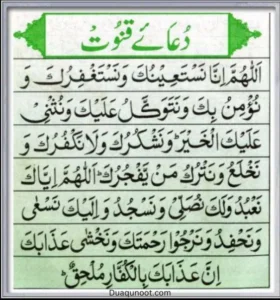 دُعَائے قنوت
اَللّٰهُمَّ اِنَّا نَسْتَعِيْنُكَ وَنَسْتَغْفِرُكَ وَ
نُؤْمِنُ بِكَ وَنَتَوَكَّلُ عَلَيْكَ وَنُثْنِیْ
عَلَيْكَ الْخَيْرَ وَنَشْكُرُكَ وَلَا نَكْفُرُكَ وَ
نَخْلَعُ وَنَتْرُكُ مَنْ يَّفْجُرُكَ اَللّٰهُمَّ اِيَّاكَ
نَعْبُدُ وَلَكَ نُصَلِّیْ وَنَسْجُدُ وَاِلَيْكَ نَسْعٰی
وَنَحْفِدُ وَنَرْجُوْا رَحْمَتَكَ وَنَخْشٰی عَذَابَكَ
اِنَّ عَذَابَكَ بِالْكُفَّارِ مُلْحِقٌ
Duaqunoot.com